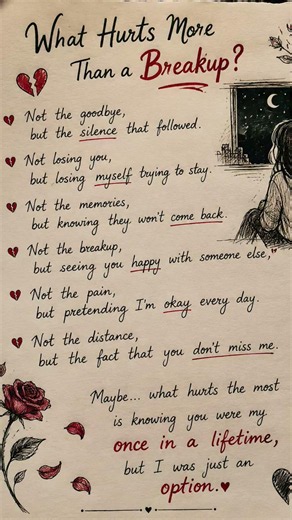 What Hurts More
Than a Breakup?
Not the goodbye,
but the silence that followed.
Not losing you,
but losing myself trying to stay.
Not the memories,
but knowing they won't come back.
Not the breakup,
but seeing you happy with someone else,"
Not the pain,
but pretending I'm okay every day.
Not the distance,
but the fact that you don't miss me.
Maybe... what hurts the most
is knowing you were my
once in a lifetime,
but I was just an
option.